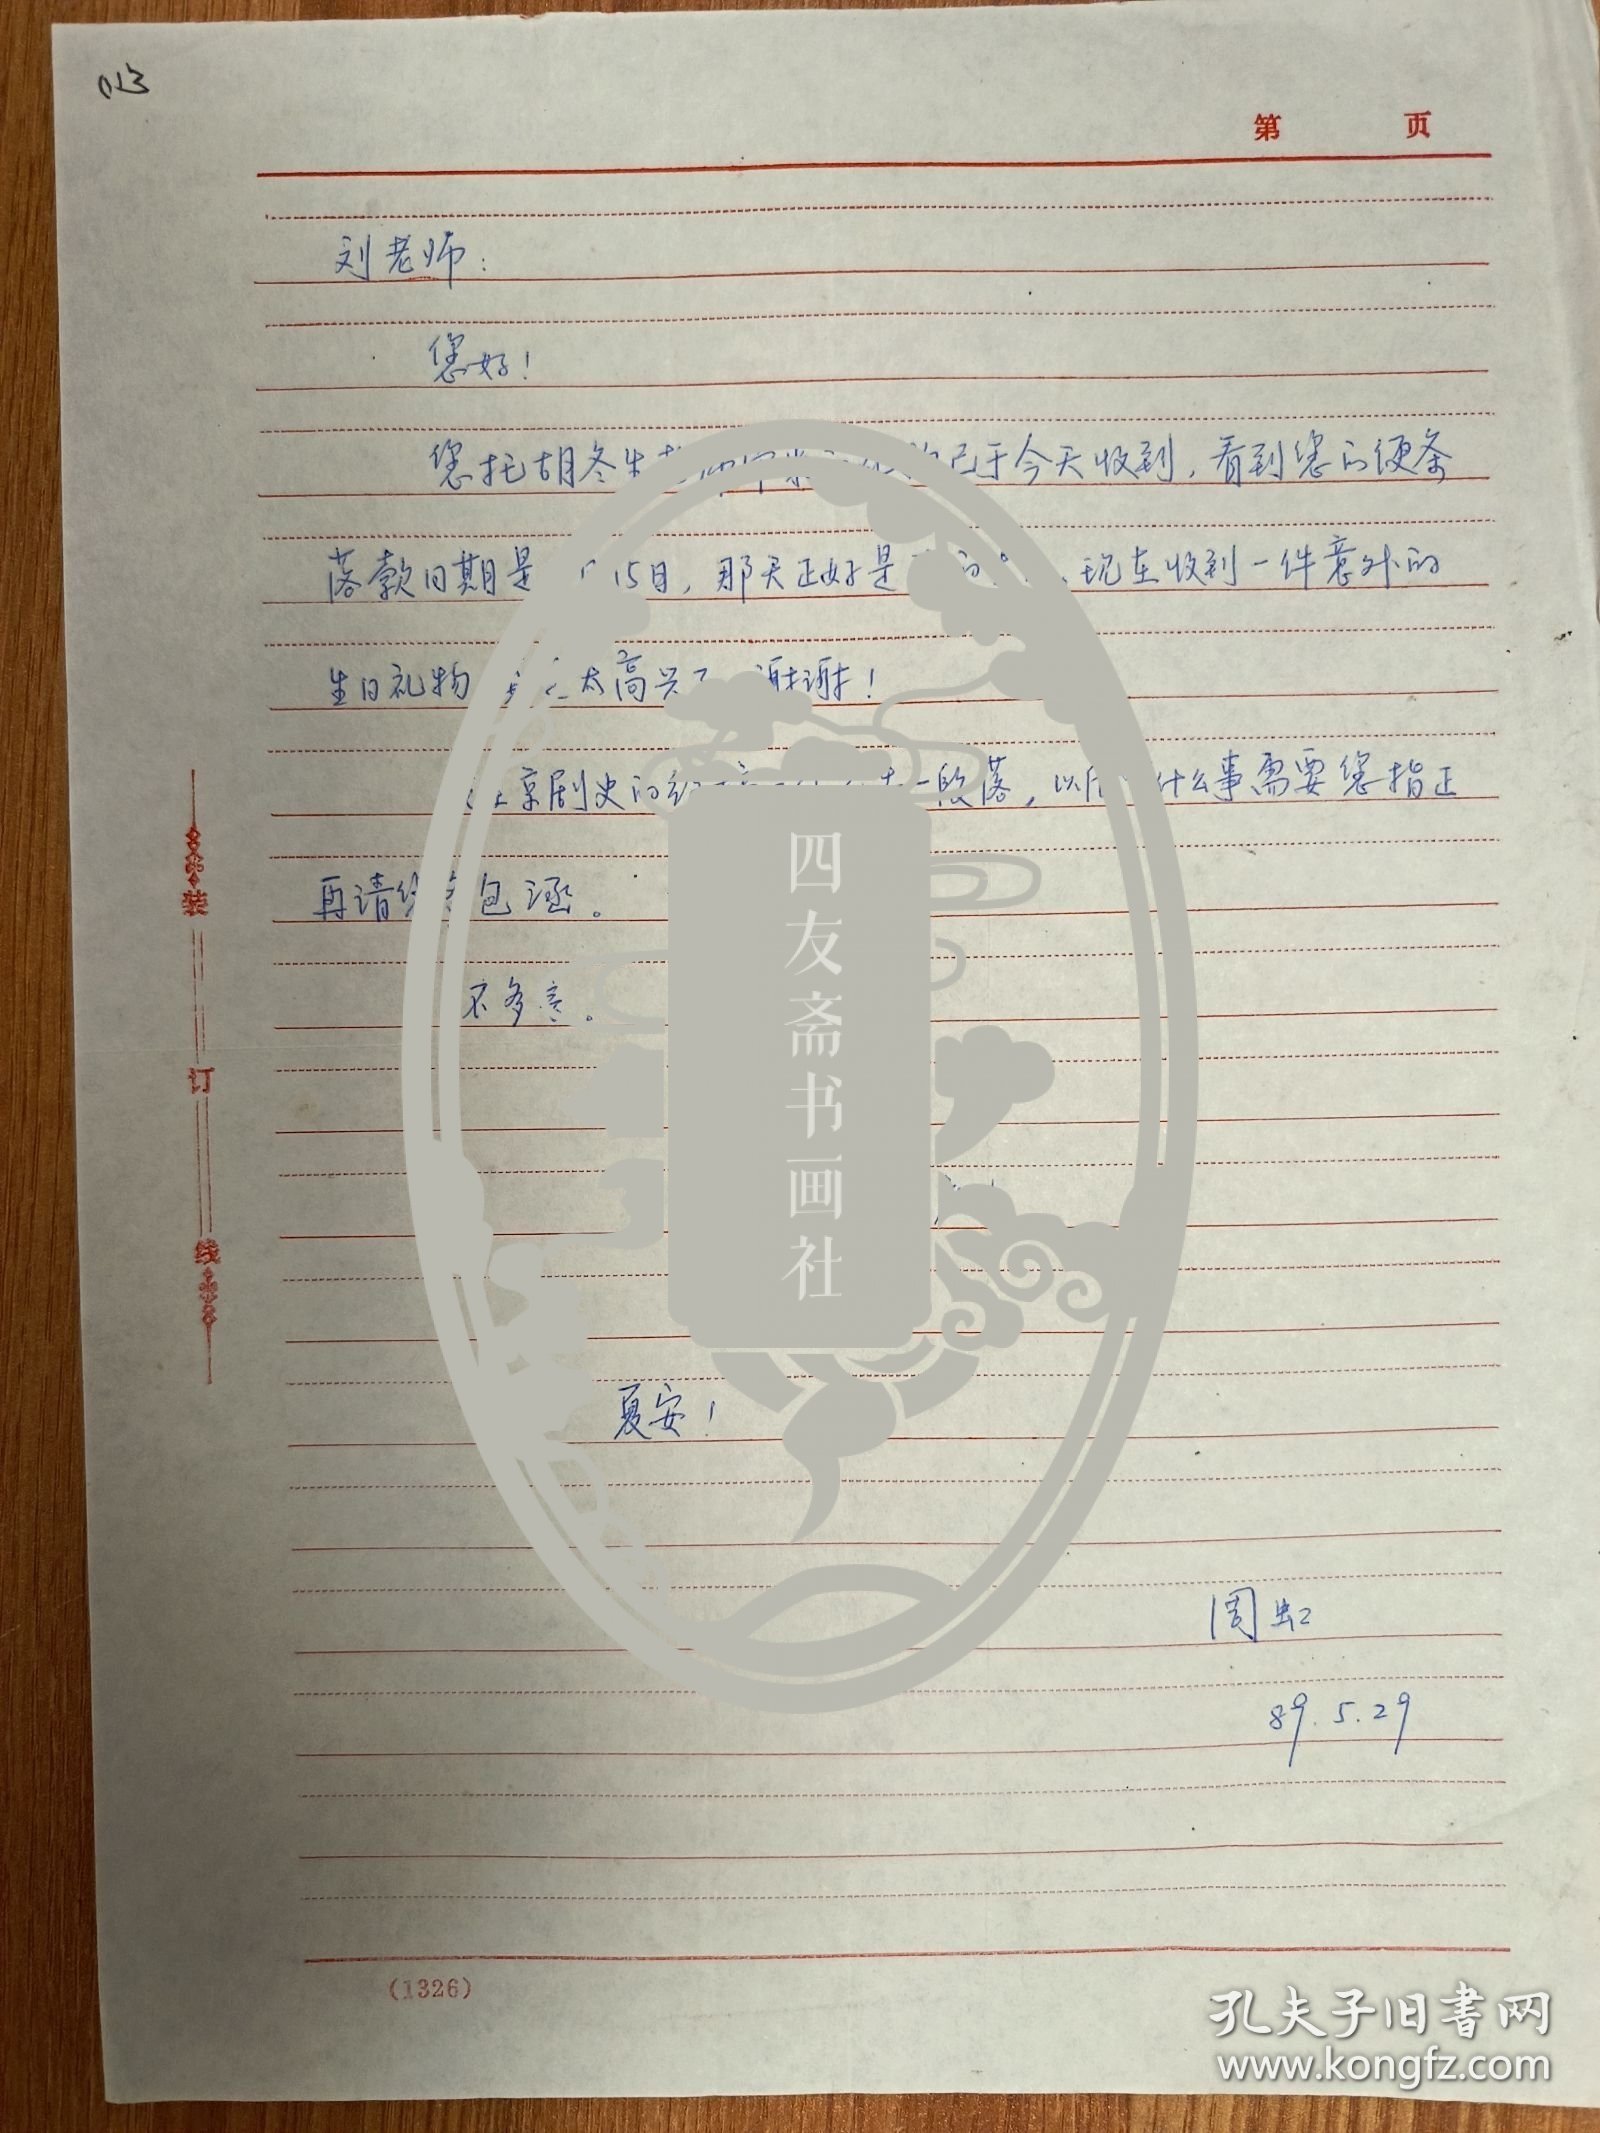 013
第 页
刘老师：
您好！
您托胡冬生 已于今天收到，看到您的便条
落款日期是 15日，那天正好是 现在收到一件意外的
生日礼物 太高兴了 谢谢！
京剧史的 一段落，以后 什么事需要您指正
再请 包涵。
不多言。
夏安！
周虹
89.5.29
装
订
线
(1326)
四友斋书画社
孔夫子旧书网
www.kongfz.com